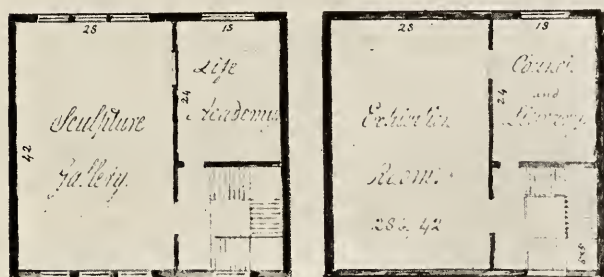 28
18
Life
24
Academy
Sculpture
42
Gallery.
28
18
Council
and
24
Library
Exhibition
Room.
28 by 42